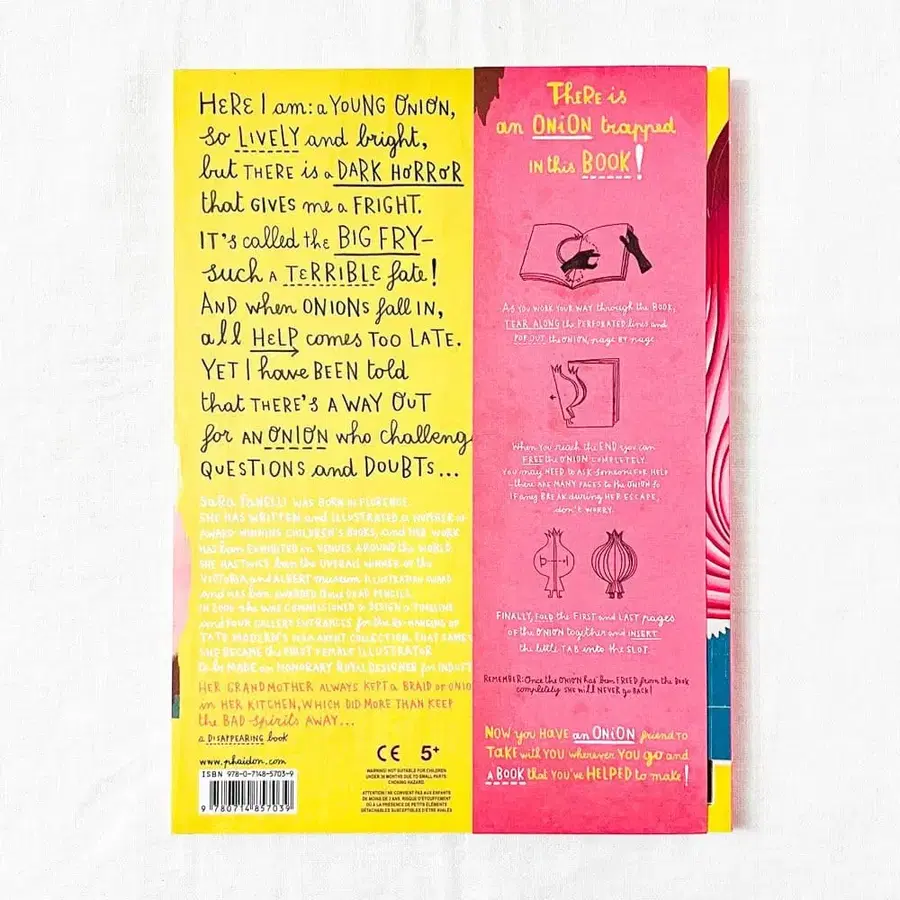 HERE I am: a YOUNG ONION,
so LIVELY and bright,
but THERE is a DARK HORROR
that GIVES me a FRIGHT.
IT'S called the BIG FRY–
such A TERRIBLE fate!
AND when ONIONS fall IN,
all HELP comes TOO LATE.
YET I have BEEN told
that THERE'S A WAY OUT
for AN ONION who challeng
QUESTIONS and DOUBTS...
SARA FANELLI WAS BORN IN FLORENCE.
SHE HAS WRITTEN and ILLUSTRATED a NUMBER OF
AWARD-WINNING CHILDREN'S BOOKS, and HER WORK
HAS been EXHIBITED in VENUES AROUND the WORLD.
SHE HAS TWICE been the OVERALL WINNER OF the
VICTORIA and ALBERT museum ILLUSTRATION AWARD
and HAS been AWARDED three D&AD PENCILS.
IN 2006 SHE WAS COMMISSIONED to DESIGN a TIMELINE
and FOUR GALLERY ENTRANCES for the RE-HANGING OF
TATE MODERN'S PERMANENT COLLECTION. THAT SAME Y
SHE BECAME the FIRST FEMALE ILLUSTRATOR
to be MADE an HONORARY ROYAL DESIGNER for INDUST
HER GRANDMOTHER ALWAYS KEPT a BRAID OF ONIO
in HER KITCHEN, WHICH DID MORE THAN KEEP
the BAD spirits AWAY...
a DISAPPEARING book
www.phaidon.com
ISBN 978-0-7148-5703-9
9 780714 857039
CE 5+
WARNING! NOT SUITABLE FOR CHILDREN
UNDER 36 MONTHS DUE TO SMALL PARTS.
CHOKING HAZARD.
ATTENTION ! NE CONVIENT PAS AUX ENFANTS
DE MOINS DE 3 ANS. RISQUE D'ÉTOUFFEMENT
DÛ À LA PRÉSENCE DE PETITS ÉLÉMENTS
DÉTACHABLES SUSCEPTIBLES D'ÊTRE AVALÉS
THERE is
an ONION trapped
IN this BOOK!
AS YOU WORK YOUR WAY through the BOOK,
TEAR ALONG the PERFORATED lines and
POP OUT the ONION, page BY page.
When YOU reach the END you can
FREE the ONION COMPLETELY.
YOU may NEED to ASK someone FOR HELP
–there ARE MANY PAGES to the ONION! So
IF any BREAK during HER ESCAPE,
don't WORRY.
FINALLY, FOLD the FIRST and LAST pages
OF the ONION together and INSERT
the little TAB into the SLOT.
REMEMBER: Once the ONION has been FREED from the BOOK
completely SHE will NEVER go BACK!
NOW you HAVE an ONION friend TO
TAKE with YOU wherever YOU go and
A BOOK that you've HELPED to make!